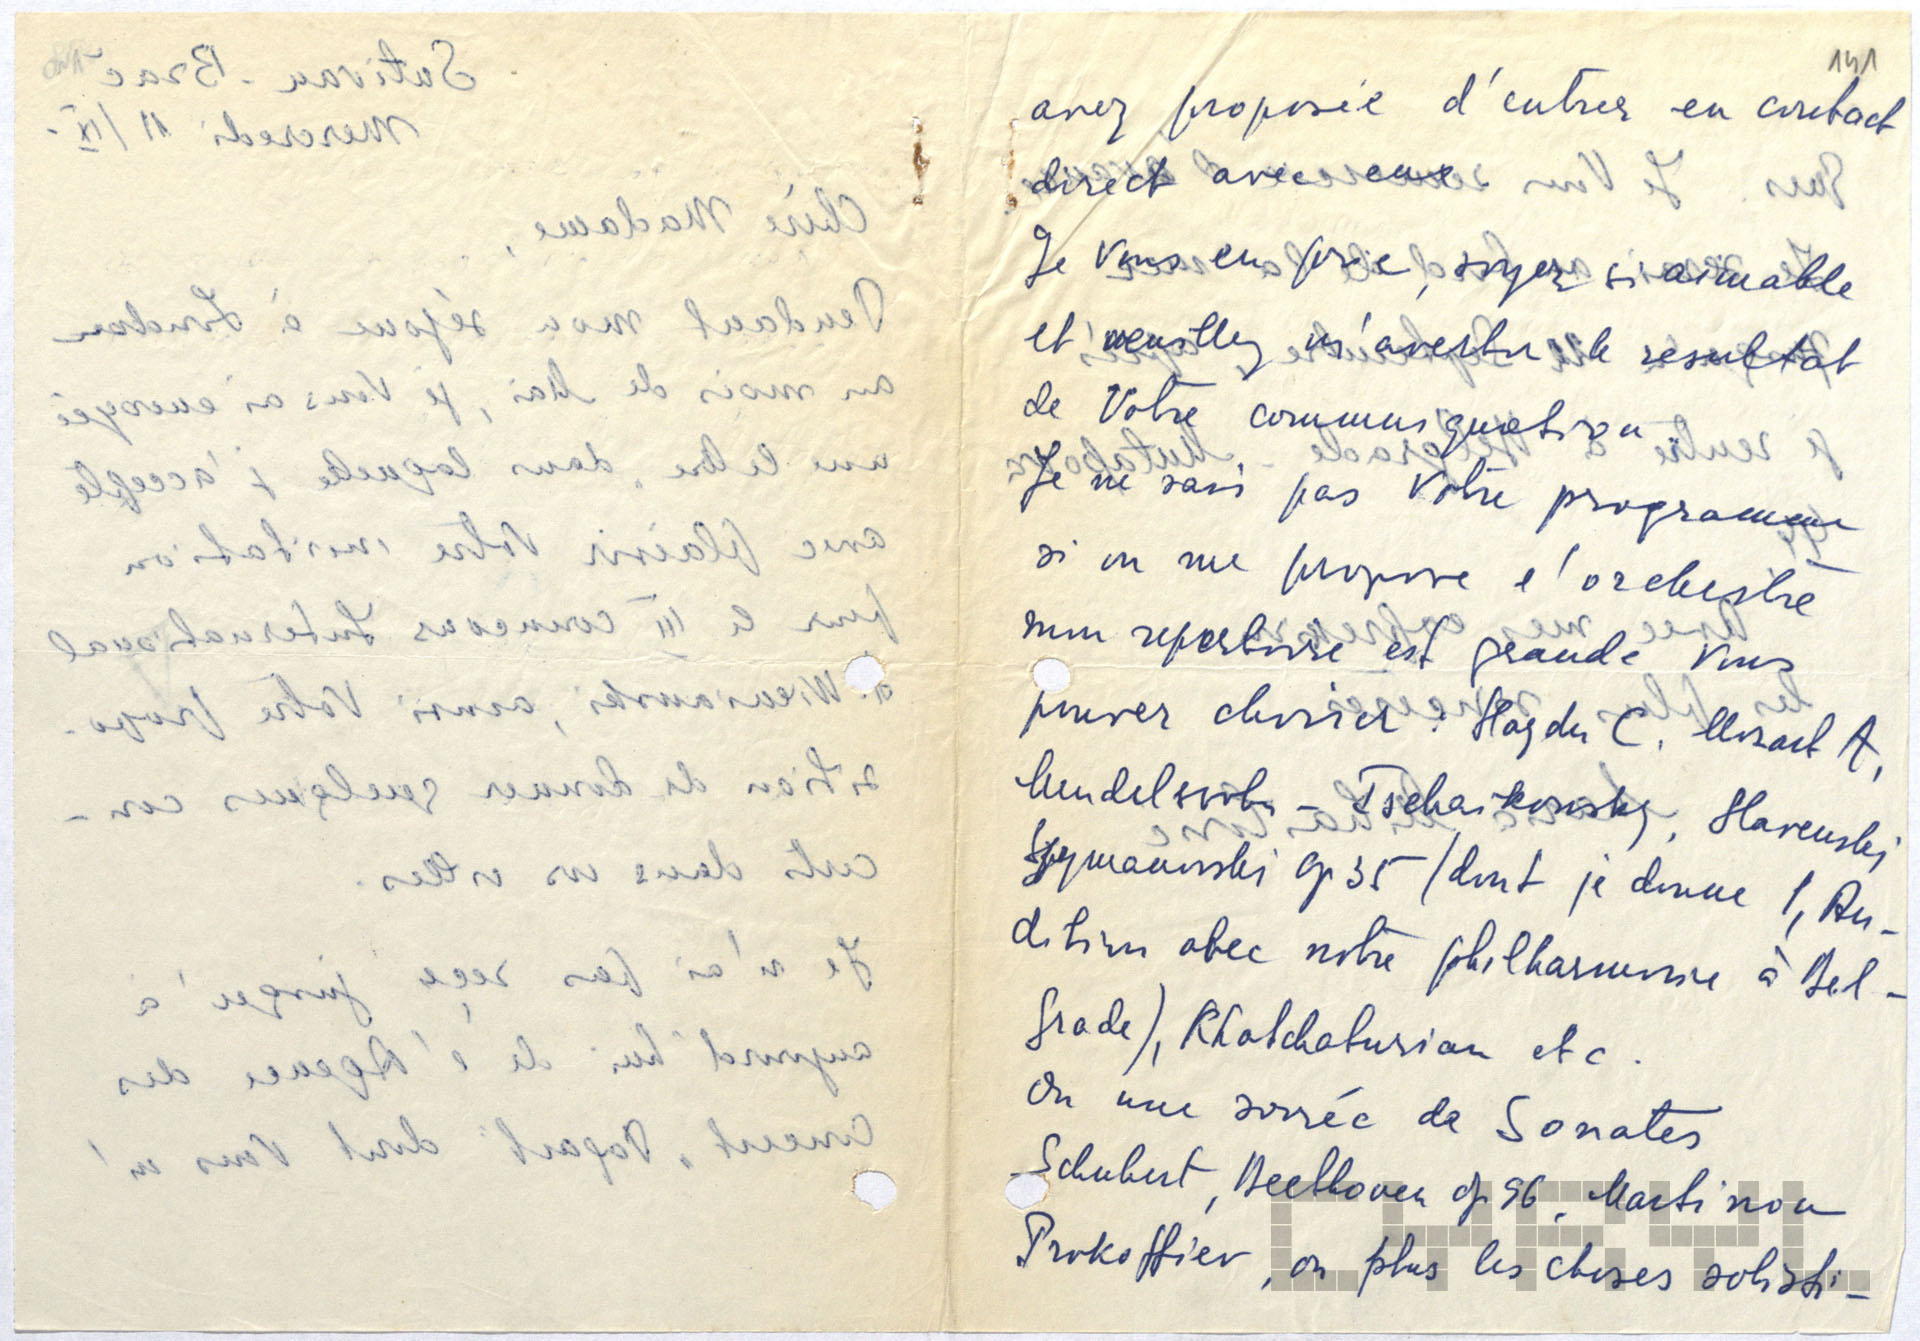 Sutivan - Brac
Mercredi 11/IX -
Chère Madame,
Pendant mon séjour à London
au mois de Mai, je Vous ai envoyée
une lettre, dans laquelle j'accepte
avec plaisir Votre invitation
pour le III concours International
Wieniawski, ainsi Votre propo-
sition de donner quelques con-
certs dans vos villes.
Je n'ai pas reçu jusqu'à
aujourd'hui de l'Agence des
Concert dont Vous m'
141
avez proposée d'entrer en contact
direct avec eux.
Je Vous en prie, soyez si aimable
et veuillez m'avertir le resultat
de Votre communiquation
Je ne sais pas Votre programme
si on me propose l'orchestre
mon repertoire est grande Vous
pouvez choisier: Haydn C, Mozart A,
Mendelssohn - Tschaikowsky, Slavenski
Szymanowski op 35 (dont je donne 1, Au-
dition avec notre philharmonie à Bel-
grade), Khatchaturian etc.
Ou une soirée de Sonates
Schubert, Beethoven op 96, Martinou
Prokoffiev, ou plus les choses solisti-